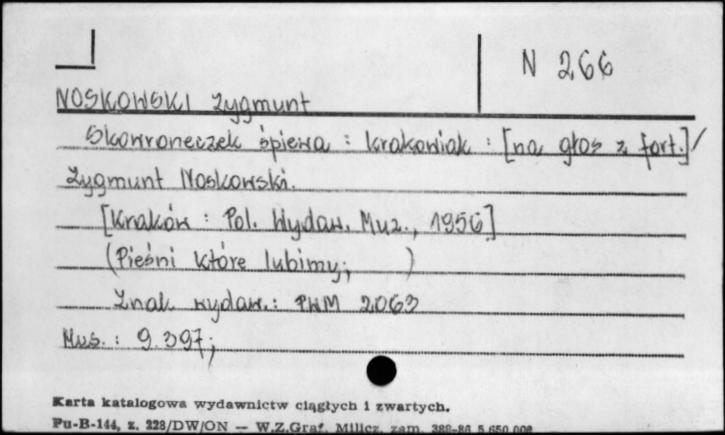 N 266
NOSKOWSKI Zygmunt
Skowroneczek śpiewa : krakowiak : [na głos z fort.]/
Zygmunt Noskowski.
[Kraków : Pol. Wydaw. Muz., 1956]
(Pieśni które lubimy; )
Znak wydaw.: PWM 2063
Mus. : 9.397;
Karta katalogowa wydawnictw ciągłych i zwartych.
Pu-B-144, z. 228/DW/ON — W.Z.Graf. Milicz, zam. 389-86 5.650.000